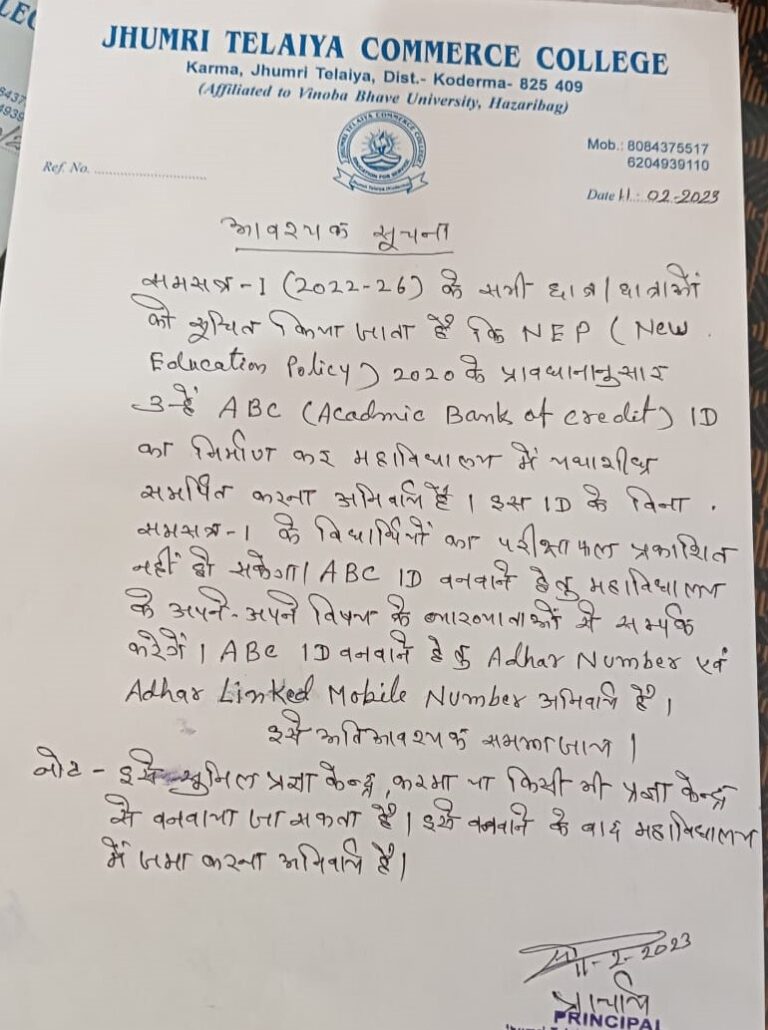 JHUMRI TELAIYA COMMERCE COLLEGE
Karma, Jhumri Telaiya, Dist.- Koderma- 825 409
(Affiliated to Vinoba Bhave University, Hazaribag)
Mob.: 8084375517
6204939110
Ref. No. ............................
Date 11.02-2023
आवश्यक सूचना
समसत्र-I (2022-26) के सभी छात्र/छात्राओं
को सूचित किया जाता है कि NEP (New
Education Policy) 2020 के प्रावधानानुसार
उन्हें ABC (Acadmic Bank of Credit) ID
का निर्माण कर महाविद्यालय में यथाशीघ्र
समर्पित करना अनिवार्य है। इस ID के बिना
समसत्र-1 के विद्यार्थियों का परीक्षाफल प्रकाशित
नहीं हो सकेगा। ABC ID बनवाने हेतु महाविद्यालय
के अपने-अपने विषय के व्याख्याताओं से सम्पर्क
करेगें। ABC ID बनवाने हेतु Adhar Number एवं
Adhar Linked Mobile Number अनिवार्य है।
इसे अतिआवश्यक समझा जाय।
नोट - इसे प्रज्ञा केन्द्र, करमा या किसी भी प्रज्ञा केन्द्र
से बनवाया जा सकता है। इसे बनवाने के बाद महाविद्यालय
में जमा करना अनिवार्य है।
11-2-2023
प्राचार्य
PRINCIPAL